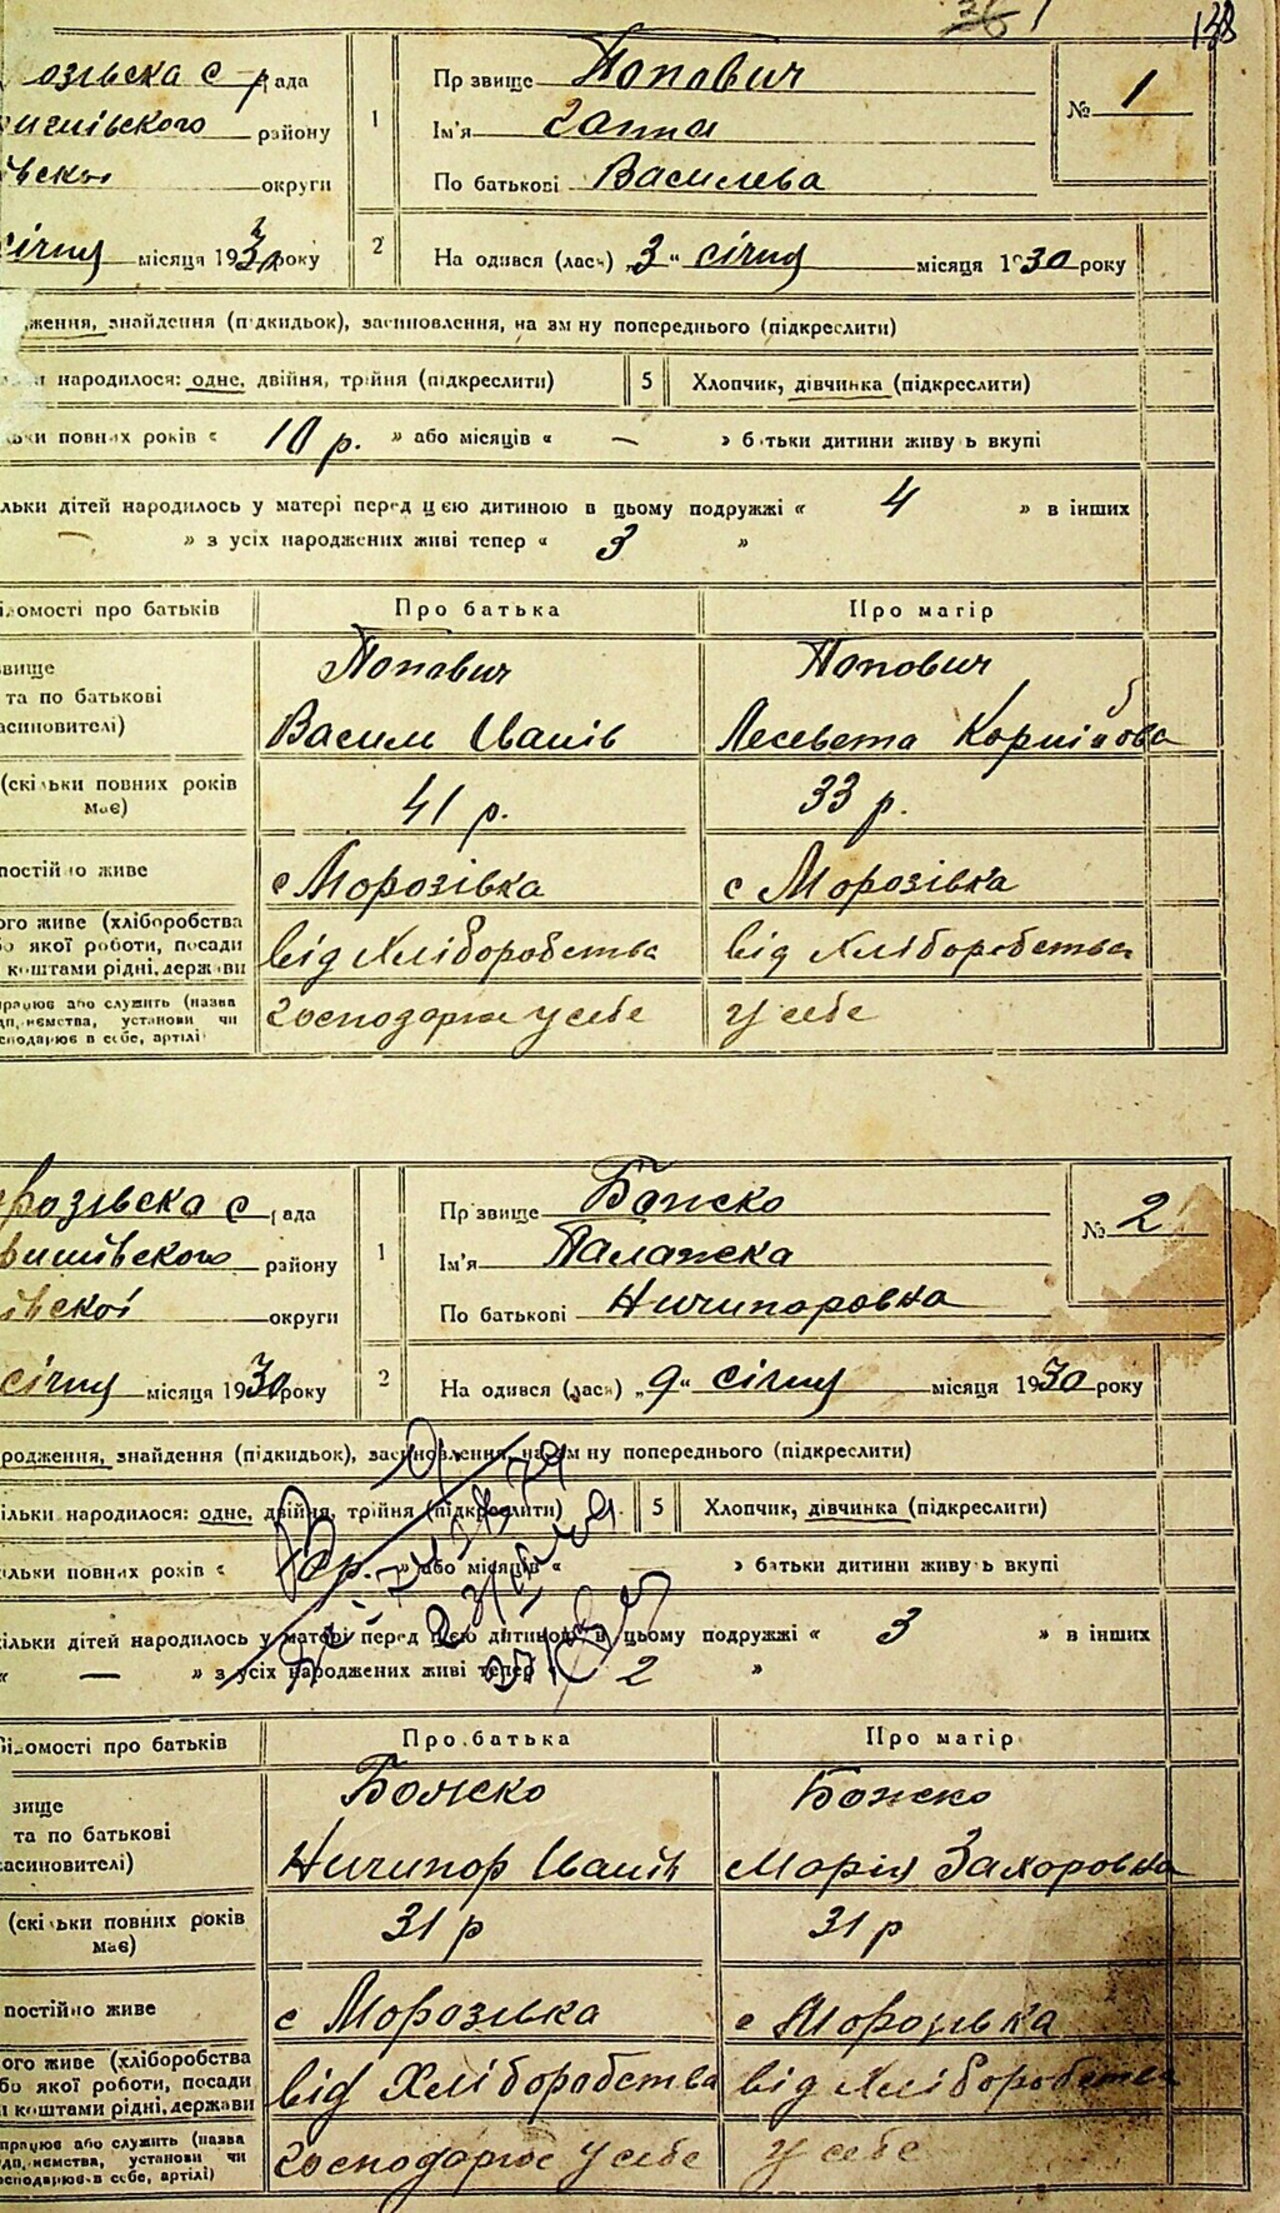 138
озівска с рада
району
округи
січня місяця 1930 року
1
Прізвище Попович
Ім'я Ганна
По батькові Василева
№ 1
2
На одився (лась) „3“ січня місяця 1930 року
ження, знайдення (підкидьок), засиновлення, на зм ну попереднього (підкреслити)
народилося: одне, двійня, трійня (підкреслити)
5
Хлопчик, дівчинка (підкреслити)
ьки повних років « 10 р. » або місяців « — » батьки дитини живу ь вкупі
льки дітей народилось у матері перед цією дитиною в цьому подружжі « 4 » в інших
— » з усіх народжених живі тепер « 3 »
ідомості про батьків
Про батька
Про матір
звище
та по батькові
асиновителі)
Попович
Василь Іванів
Попович
Лесевета
(скільки повних років має)
41 р.
33 р.
постійно живе
с Морозівка
с Морозівка
ого живе (хліборобства
бо якої роботи, посади
коштами рідні, держави
від Хліборобства
від Хліборобства
працює або служить (назва
установи чи
сподарює в себе, артілі)
господарює у себе
у себе
розівска с рада
району
округи
січня місяця 1930 року
1
Прізвище Божко
Ім'я Палажка
По батькові Ничипоровна
№ 2
2
На одився (лась) „9“ січня місяця 1930 року
родження, знайдення (підкидьок), засиновлення, на зм ну попереднього (підкреслити)
ільки народилося: одне, двійня, трійня (підкреслити)
5
Хлопчик, дівчинка (підкреслити)
ільки повних років « р. » або місяців « » батьки дитини живу ь вкупі
кільки дітей народилось у матері перед цією дитиною в цьому подружжі « 3 » в інших
« — » з усіх народжених живі тепер « 2 »
ідомості про батьків
Про батька
Про матір
звище
та по батькові
асиновителі)
Божко
Ничипор Іванів
Божко
Марія Захаровна
(скільки повних років має)
31 р
31 р
постійно живе
с Морозівка
с Морозівка
ого живе (хліборобства
бо якої роботи, посади
коштами рідні, держави
від Хліборобства
від Хліборобства
працює або служить (назва
установи чи
сподарює в себе, артілі)
господарює у себе
у себе